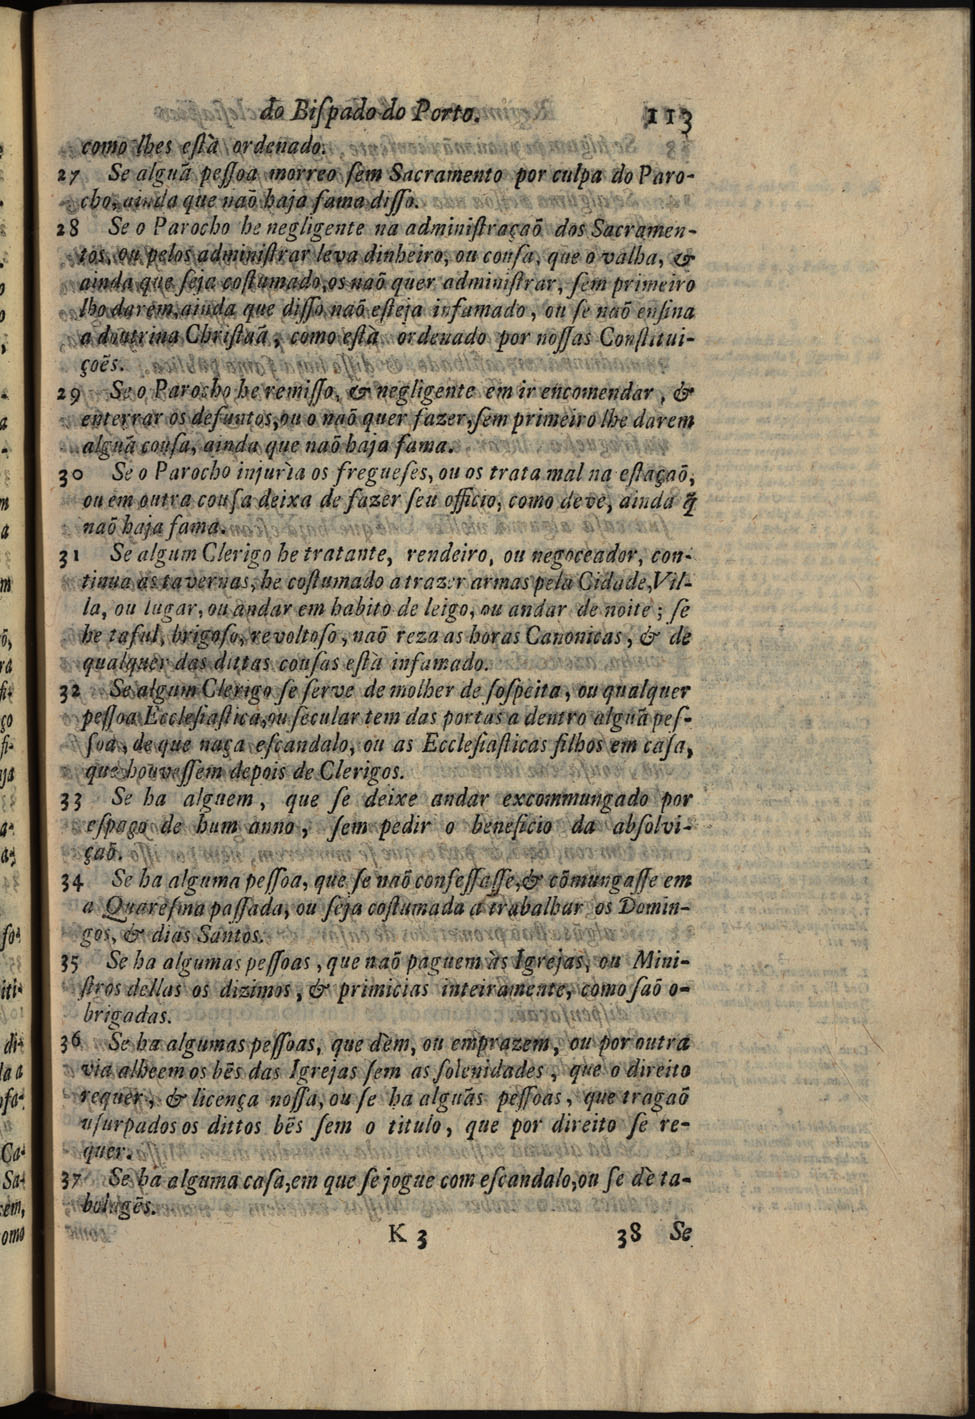 do Biſpado do Porto. 113
como lhes eſtà ordenado.
27 Se alguã peſſoa morreo ſem Sacramento por culpa do Paro-
cho, ainda que naõ haja fama diſſo.
28 Se o Parocho he negligente na adminiſtraçaõ dos Sacramen-
tos, ou pelos adminiſtrar leva dinheiro, ou couſa, que o valha, &
ainda que ſeja coſtumado, os naõ quer adminiſtrar, ſem primeiro
lho darem, ainda que diſſo naõ eſteja infamado, ou ſe naõ enſina
a doutrina Chriſtuã, como eſtà ordenado por noſſas Conſtitui-
çoẽs.
29 Se o Parocho he remiſſo, & negligente em ir encomendar, &
enterrar os defuntos, ou o naõ quer fazer, ſem primeiro lhe darem
alguã couſa, ainda que naõ haja fama.
30 Se o Parocho injurìa os fregueſes, ou os trata mal na eſtaçaõ,
ou em outra couſa deixa de fazer ſeu officio, como deve, ainda q̃
naõ haja fama.
31 Se algum Clerigo he tratante, rendeiro, ou negoceador, con-
tinua as tavernas, he coſtumado a trazer armas pela Cidade, Vil-
la, ou lugar, ou andar em habito de leigo, ou andar de noite; ſe
he taful, brigoſo, revoltoſo, naõ reza as horas Canonicas, & de
qualquer das dittas couſas eſtà infamado.
32 Se algum Clerigo ſe ſerve de molher de ſoſpeita, ou qualquer
peſſoa Eccleſiaſtica, ou ſecular tem das portas a dentro alguã peſ-
ſoa, de que naça eſcandalo, ou as Eccleſiaſticas filhos em caſa,
que houveſſem depois de Clerigos.
33 Se ha alguem, que ſe deixe andar excommungado por
eſpaço de hum anno, ſem pedir o beneficio da abſolvi-
çaõ.
34 Se ha alguma peſſoa, que ſe naõ confeſſaſſe, & cõmungaſſe em
a Quareſma paſſada, ou ſeja coſtumada a trabalhar os Domin-
gos, & dias Santos.
35 Se ha algumas peſſoas, que naõ paguem às Igrejas, ou Mini-
ſtros dellas os dizimos, & primicias inteiramente, como ſaõ o-
brigadas.
36 Se ha algumas peſſoas, que dèm, ou emprazem, ou por outra
via alheem os bẽs das Igrejas ſem as ſolenidades, que o direito
requer, & licença noſſa, ou ſe ha alguãs peſſoas, que tragaõ
uſurpados os dittos bẽs ſem o titulo, que por direito ſe re-
quer.
37 Se ha alguma caſa, em que ſe jogue com eſcandalo, ou ſe dè ta-
bolagẽs.
K 3 38 Se